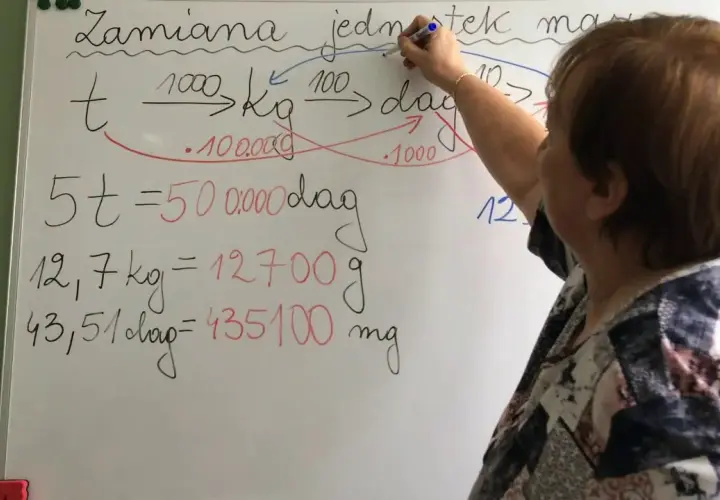 Zamiana jednostek
t 1000 kg 100 dag 10
.100.000 .1000
5t = 500.000 dag
12,7 kg = 12700 g
43,51 dag = 435100 mg
12,